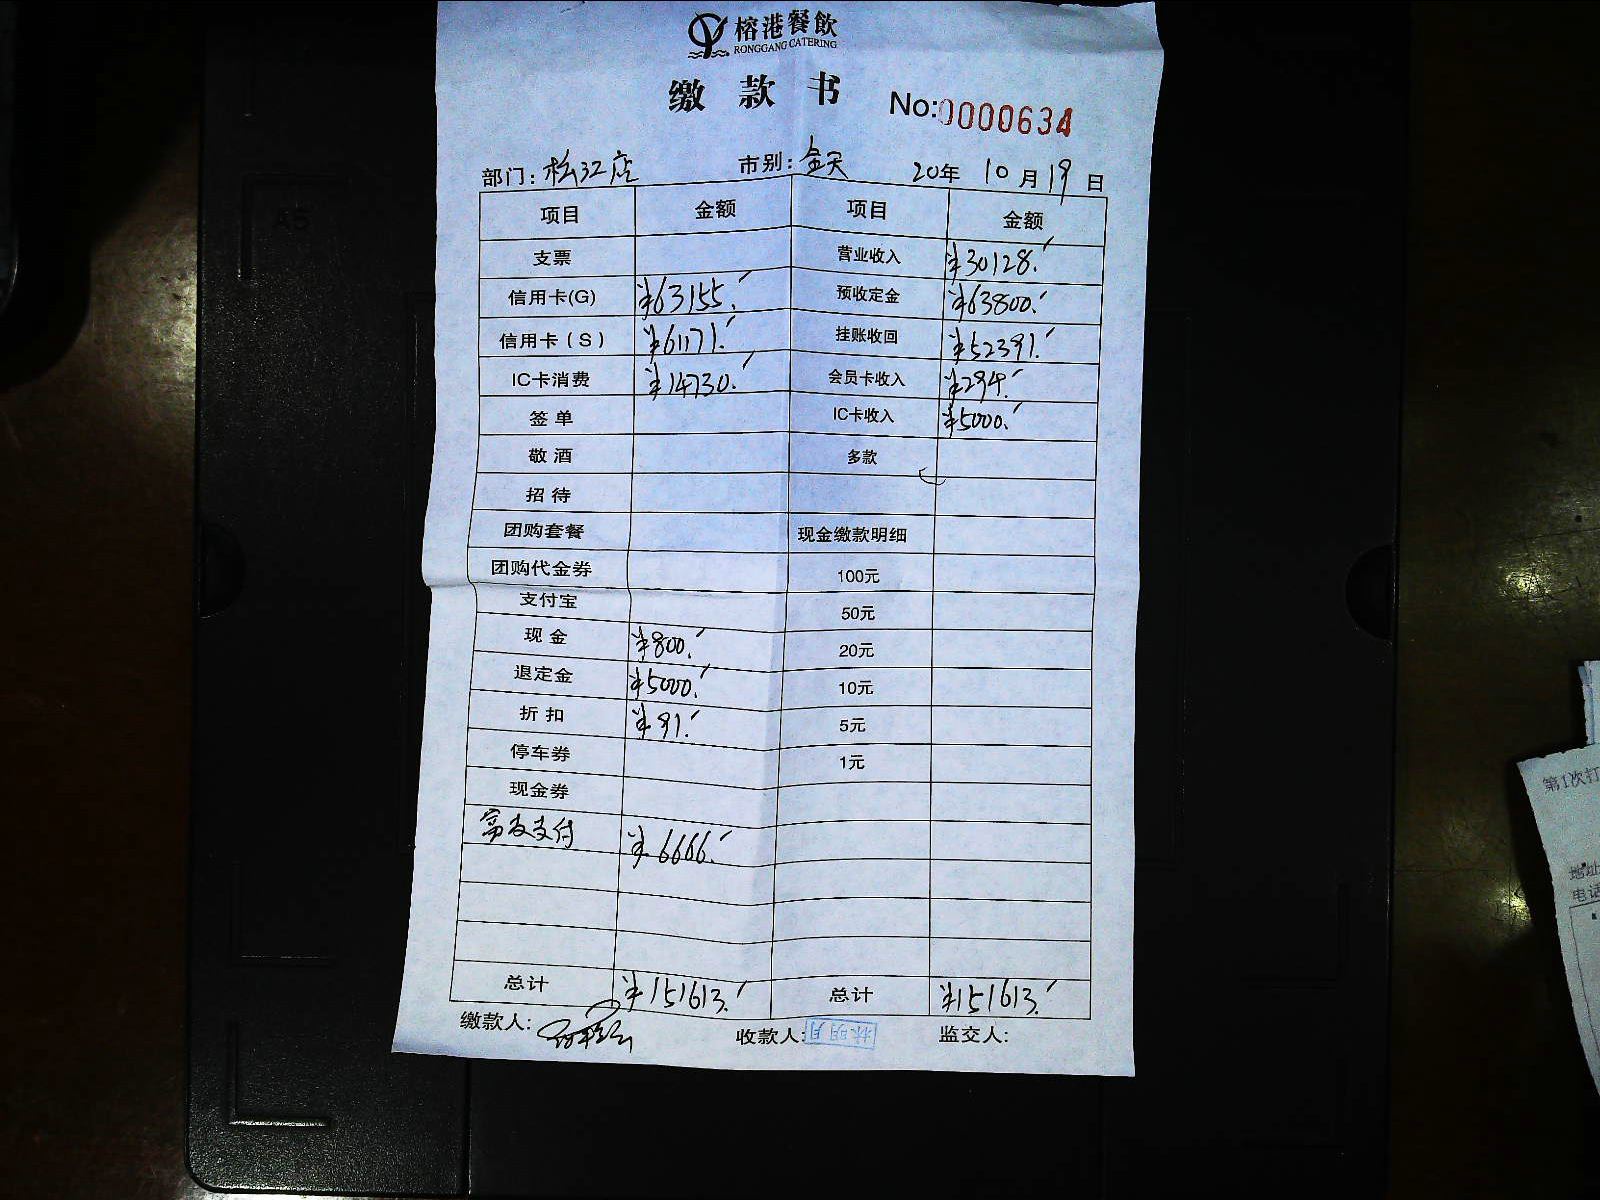 榕港餐飲
RONGGANG CATERING
缴 款 书
No:0000634
部门: 松江店 市别: 全天 20年 10月19日
项目 金额 项目 金额
支票 营业收入 ¥30128.
信用卡(G) ¥63155. 预收定金 ¥63800.
信用卡(S) ¥61171. 挂账收回 ¥52391.
IC卡消费 ¥14730. 会员卡收入 ¥294.
签单 IC卡收入 ¥5000.
敬酒 多款
招待
团购套餐 现金缴款明细
团购代金券 100元
支付宝 50元
现金 ¥800. 20元
退定金 ¥5000. 10元
折扣 ¥91. 5元
停车券 1元
现金券
富友支付 ¥6666.
总计 ¥151613. 总计 ¥151613.
缴款人: 收款人: 林明月 监交人:
第1次打
地址
电话